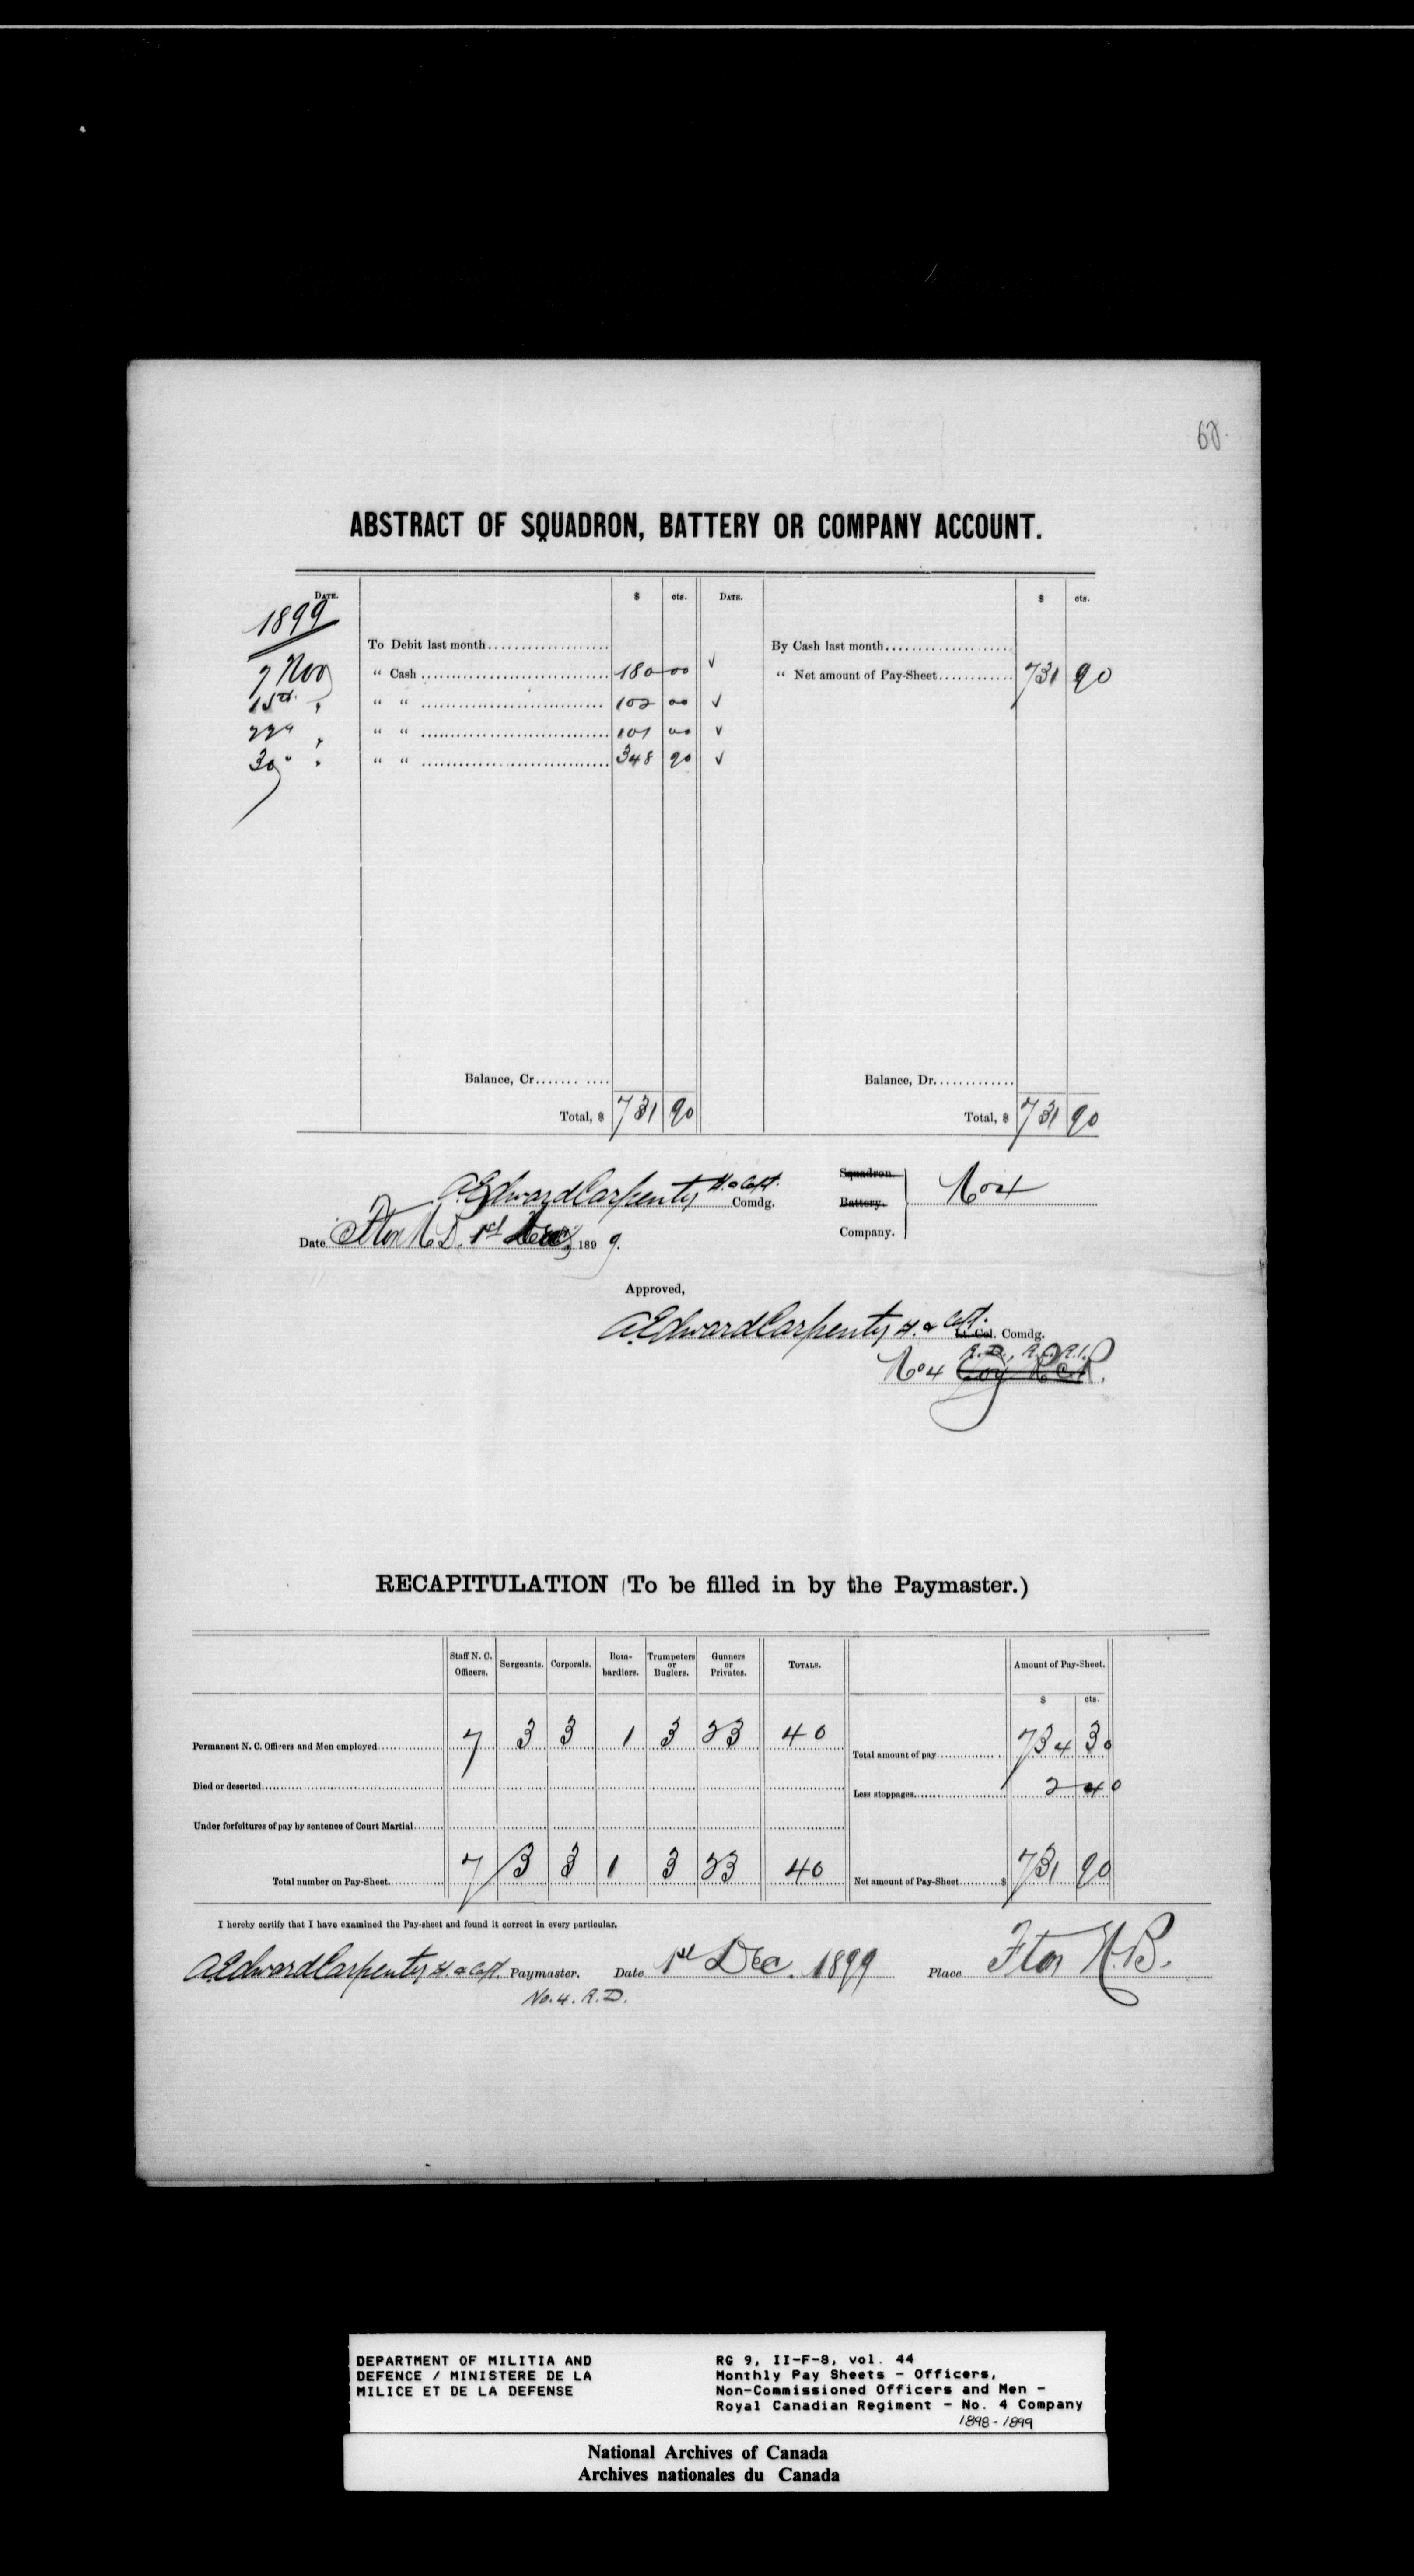 68.
ABSTRACT OF SQUADRON, BATTERY OR COMPANY ACCOUNT.
DATE. $ cts. DATE. $ cts.
1899
To Debit last month By Cash last month
7 Nov “ Cash 180 00 ✓ “ Net amount of Pay-Sheet 731 90
15th " “ “ 102 00 ✓
22d " “ “ 101 00 ✓
30 " “ “ 348 90 ✓
Balance, Cr. Balance, Dr.
Total, $ 731 90 Total, $ 731 90
A. Edward Carpenter H. & Capt. Comdg.
Squadron.
Battery.
Company. No 4
Date Fton N.B. 1st Dec 1899.
Approved,
A. Edward Carpenter H. & Capt.
Lt. Col. Comdg.
R.D., R.C.R.I.
No 4 Coy R.C.R.
RECAPITULATION (To be filled in by the Paymaster.)
Staff N. C. Officers. Sergeants. Corporals. Bombardiers. Trumpeters or Buglers. Gunners or Privates. TOTALS. Amount of Pay-Sheet.
$ cts.
Permanent N. C. Officers and Men employed 7 3 3 1 3 23 40 Total amount of pay 734 30
Died or deserted Less stoppages 2 40
Under forfeitures of pay by sentence of Court Martial
Total number on Pay-Sheet 7 3 3 1 3 23 40 Net amount of Pay-Sheet $ 731 90
I hereby certify that I have examined the Pay-sheet and found it correct in every particular.
A. Edward Carpenter H. & Capt. Paymaster. Date 1st Dec. 1899 Place Fton N.B.
No. 4. R.D.
DEPARTMENT OF MILITIA AND
DEFENCE / MINISTERE DE LA
MILICE ET DE LA DEFENSE
RG 9, II-F-8, vol. 44
Monthly Pay Sheets - Officers,
Non-Commissioned Officers and Men -
Royal Canadian Regiment - No. 4 Company
1898-1899
National Archives of Canada
Archives nationales du Canada